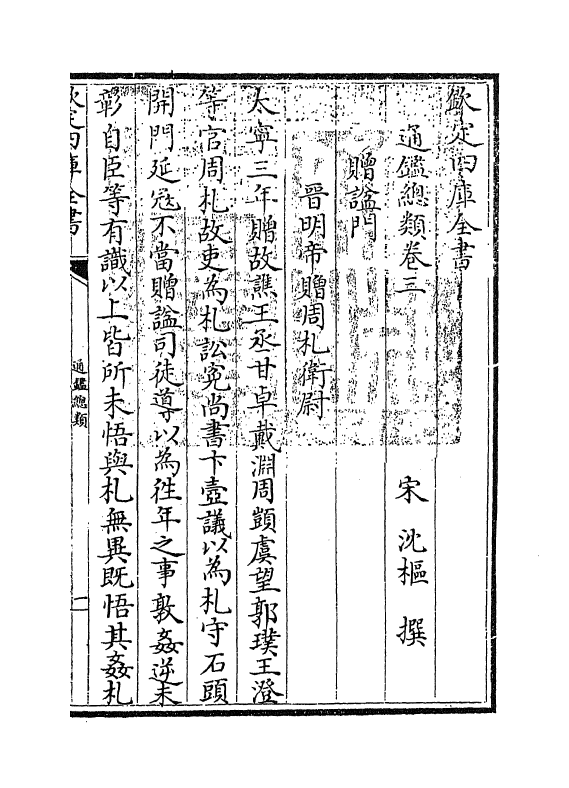 欽定四庫全書
通鑑總類卷三
宋 沈樞 撰
贈諡門
晉明帝贈周札衛尉
太寧三年贈故譙王丞甘卓戴淵周顗虞望郭璞王澄
等官周札故吏為札訟寃尚書卞壼議以為札守石頭
開門延冦不當贈諡司徒導以為徃年之事敦姦逆未
彰自臣等有識以上皆所未悟與札無異既悟其姦札
欽定四庫全書
通鑑總類